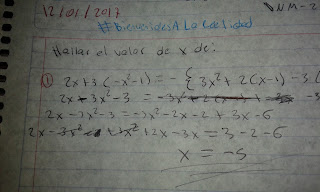 12/01/2017
NM-2
#Bienvenidos A La Realidad
Hallar el valor de x de:
① 2x+3(-x²-1) = -{3x²+2(x-1)-3(
2x-3x²-3 = -3x²
2x-3x²-3=-3x²-2x-2+3x-6
2x-3x²+3x²+2x-3x=3-2-6
x = -5